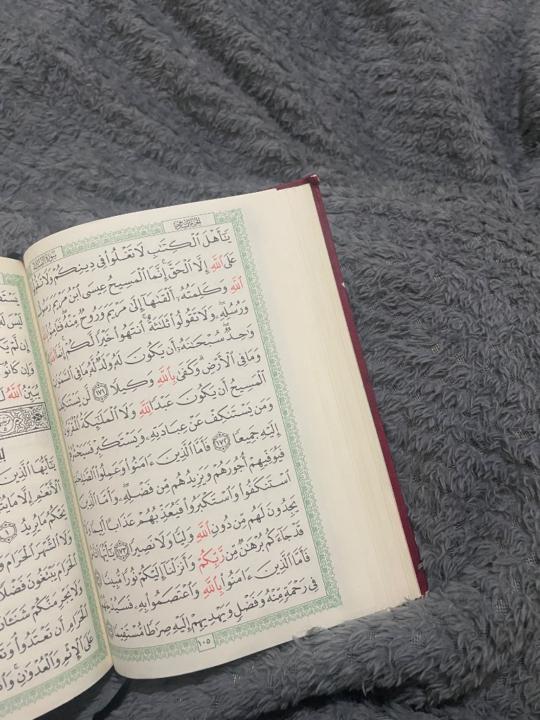 الجزء السادس
سورة النساء
يَٰٓأَهْلَ ٱلْكِتَٰبِ لَا تَغْلُوا۟ فِى دِينِكُمْ وَلَا تَقُولُوا۟
عَلَى ٱللَّهِ إِلَّا ٱلْحَقَّ إِنَّمَا ٱلْمَسِيحُ عِيسَى ٱبْنُ مَرْيَمَ رَسُولُ
ٱللَّهِ وَكَلِمَتُهُۥٓ أَلْقَىٰهَآ إِلَىٰ مَرْيَمَ وَرُوحٌ مِّنْهُ فَـَٔامِنُوا۟
وَرُسُلِهِۦ وَلَا تَقُولُوا۟ ثَلَٰثَةٌ ٱنتَهُوا۟ خَيْرًا لَّكُمْ إِنَّمَا ٱللَّهُ
وَٰحِدٌ سُبْحَٰنَهُۥٓ أَن يَكُونَ لَهُۥ وَلَدٌ لَّهُۥ مَا فِى ٱلسَّمَٰوَٰتِ
وَمَا فِى ٱلْأَرْضِ وَكَفَىٰ بِٱللَّهِ وَكِيلًا ١٧١ لَّن يَسْتَنكِفَ
ٱلْمَسِيحُ أَن يَكُونَ عَبْدًا لِّلَّهِ وَلَا ٱلْمَلَٰٓئِكَةُ ٱلْمُقَرَّبُونَ
وَمَن يَسْتَنكِفْ عَنْ عِبَادَتِهِۦ وَيَسْتَكْبِرْ فَسَيَحْشُرُهُمْ
إِلَيْهِ جَمِيعًا ١٧٢ فَأَمَّا ٱلَّذِينَ ءَامَنُوا۟ وَعَمِلُوا۟ ٱلصَّٰلِحَٰتِ
فَيُوَفِّيهِمْ أُجُورَهُمْ وَيَزِيدُهُم مِّن فَضْلِهِۦ وَأَمَّا ٱلَّذِينَ
ٱسْتَنكَفُوا۟ وَٱسْتَكْبَرُوا۟ فَيُعَذِّبُهُمْ عَذَابًا أَلِيمًا وَلَا
يَجِدُونَ لَهُم مِّن دُونِ ٱللَّهِ وَلِيًّا وَلَا نَصِيرًا ١٧٣ يَٰٓأَيُّهَا ٱلنَّاسُ
قَدْ جَآءَكُم بُرْهَٰنٌ مِّن رَّبِّكُمْ وَأَنزَلْنَآ إِلَيْكُمْ نُورًا مُّبِينًا
فَأَمَّا ٱلَّذِينَ ءَامَنُوا۟ بِٱللَّهِ وَٱعْتَصَمُوا۟ بِهِۦ فَسَيُدْخِلُهُمْ
فِى رَحْمَةٍ مِّنْهُ وَفَضْلٍ وَيَهْدِيهِمْ إِلَيْهِ صِرَٰطًا مُّسْتَقِيمًا
١٠٥
لَيْسَ لَهُ
إِن لَّمْ
وَإِن كَانُوٓا۟
يُبَيِّنُ ٱللَّهُ
يَٰٓأَيُّهَا ٱلَّذِينَ
ٱلْأَنْعَٰمِ إِلَّا مَا
يَحْكُمُ مَا يُرِيدُ ١
وَلَا ٱلشَّهْرَ ٱلْحَرَامَ
ٱلْحَرَامَ يَبْتَغُونَ فَضْلًا
وَلَا يَجْرِمَنَّكُمْ شَنَـَٔانُ
ٱلْحَرَامِ أَن تَعْتَدُوا۟
عَلَى ٱلْإِثْمِ وَٱلْعُدْوَٰنِ